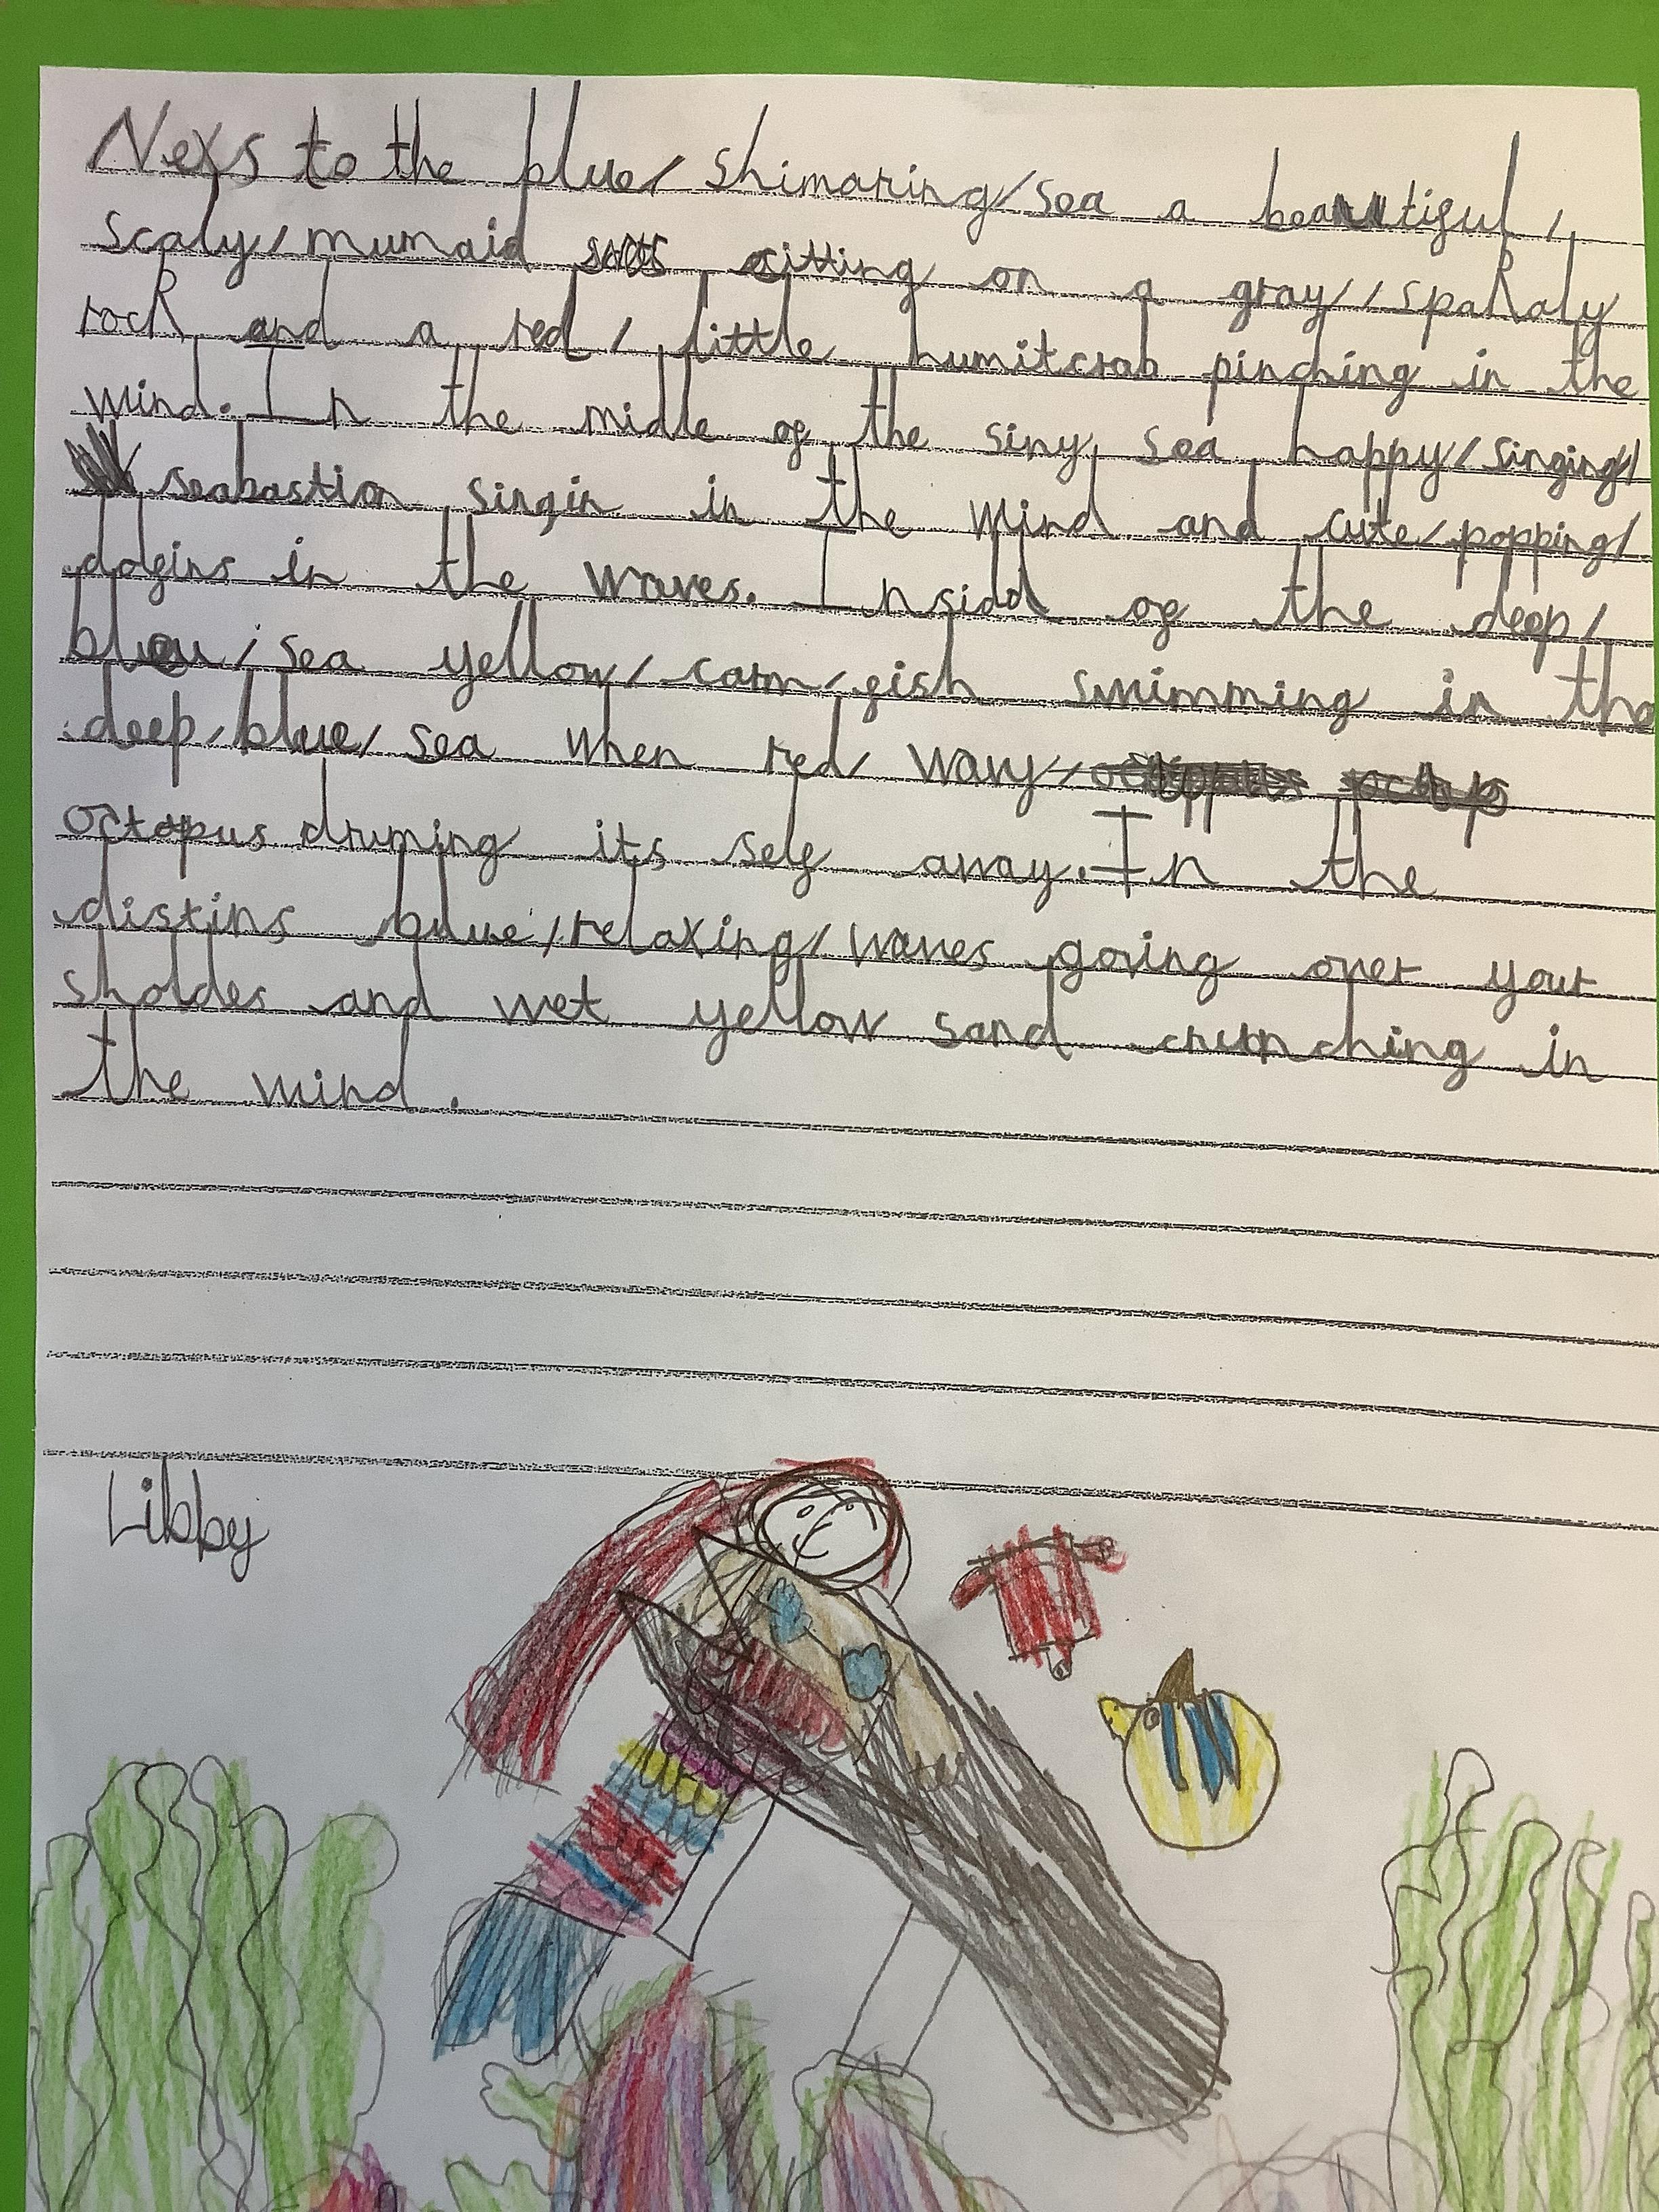 Nexs to the blue/ shimaring/ sea a beautiful/
scaly/ mumaid sitting on a gray// sparaly
rock and a red/ little humitcrab pinching in the
wind. In the midle of the siny sea happy/ singing/
seabastion singin in the wind and cute/ popping/
dolfins in the waves. Insidd of the deep/
blou/ sea yellow/ carm/ fish swimming in the
deep/ blue/ sea when red/ wavy/
octopus druming its self away. In the
distins blue/ relaxing/ waves going over your
sholdes and wet yellow sand crunching in
the wind.
Libby